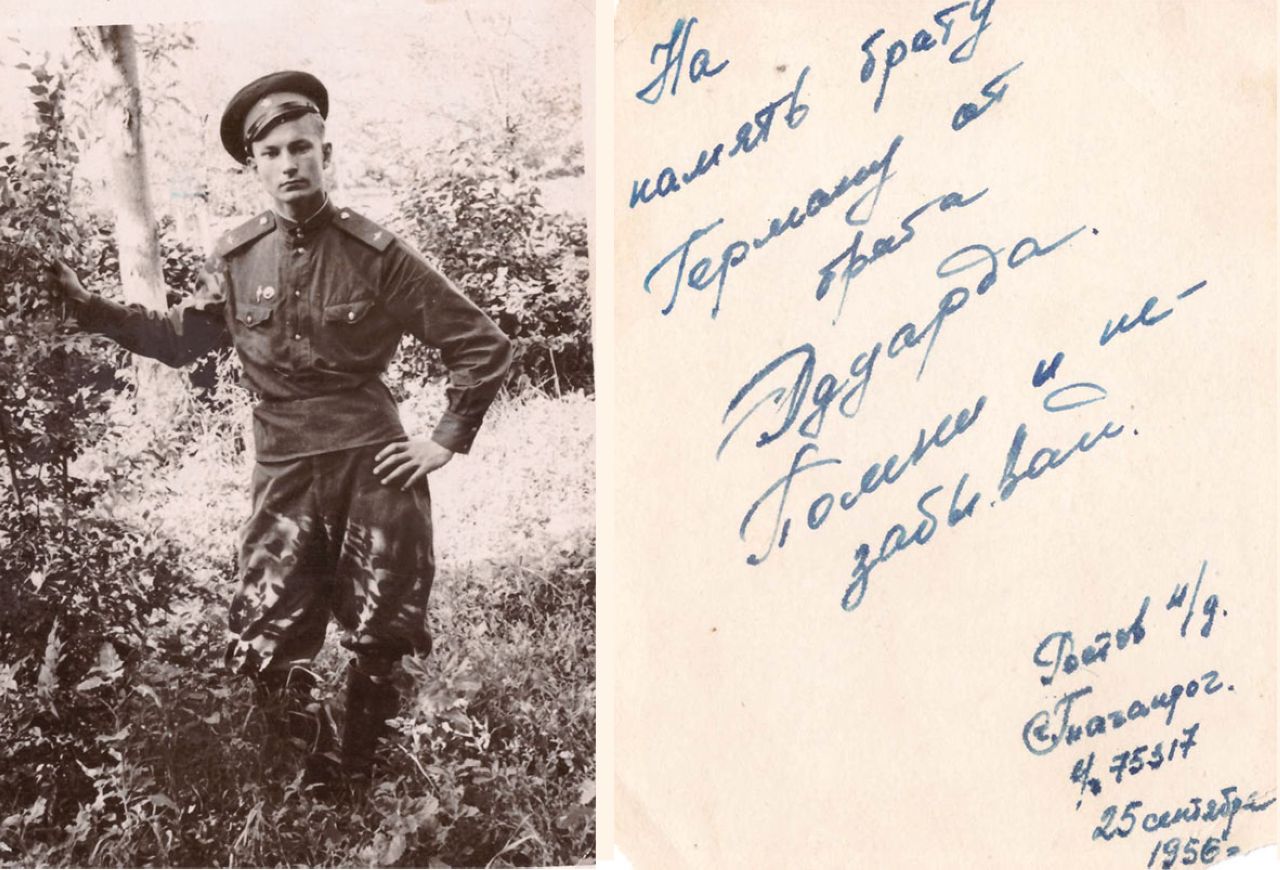 На
память брату
Герману от
брата
Эдуарда.
Помни и не-
забывай.
Ростов н/д.
г. Таганрог.
в/ч 75317
25 сентября
1956 г.